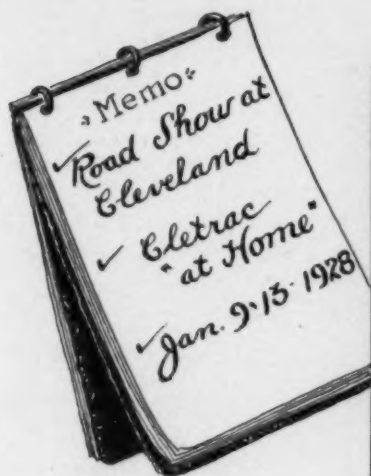 Memo
✓Road Show at
Cleveland
✓ Cletrac
"at Home"
✓Jan. 9-13-1928